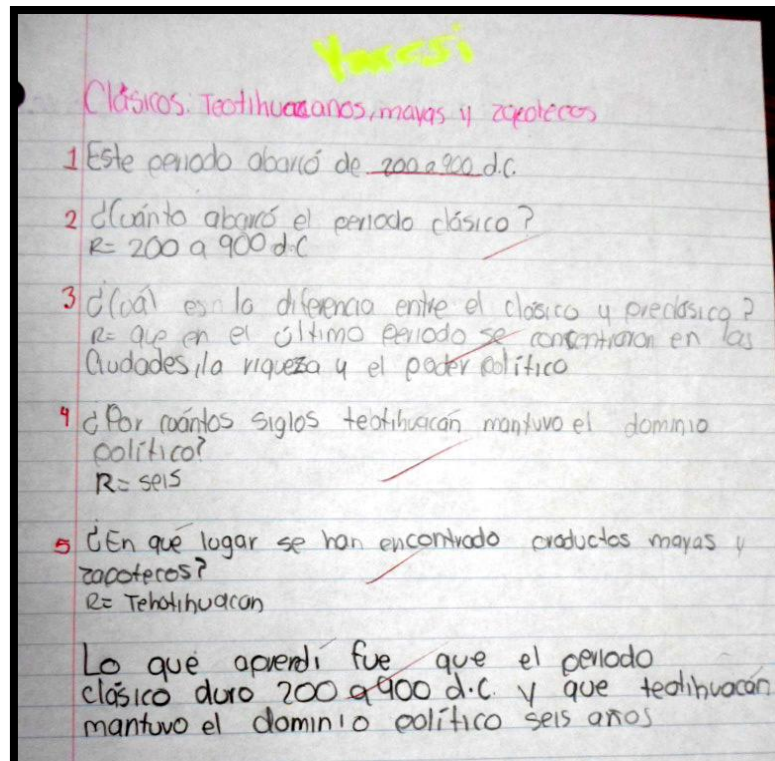 Yaresi
Clásicos: Teotihuacanos, mayas y zapotecos
1 Este periodo abarcó de 200 a 900 d.C.
2 ¿Cuánto abarcó el periodo clásico?
R= 200 a 900 d.C
3 ¿Cuál es la diferencia entre el clásico y preclásico?
R= que en el último periodo se concentraron en las
Ciudades, la riqueza y el poder político
4 ¿Por cuántos siglos teotihuacán mantuvo el dominio
político?
R= seis
5 ¿En qué lugar se han encontrado productos mayas y
zapotecos?
R= Tehotihuacan
Lo que aprendí fue que el periodo
clásico duro 200 a 900 d.C. y que teotihuacán
mantuvo el dominio político seis años